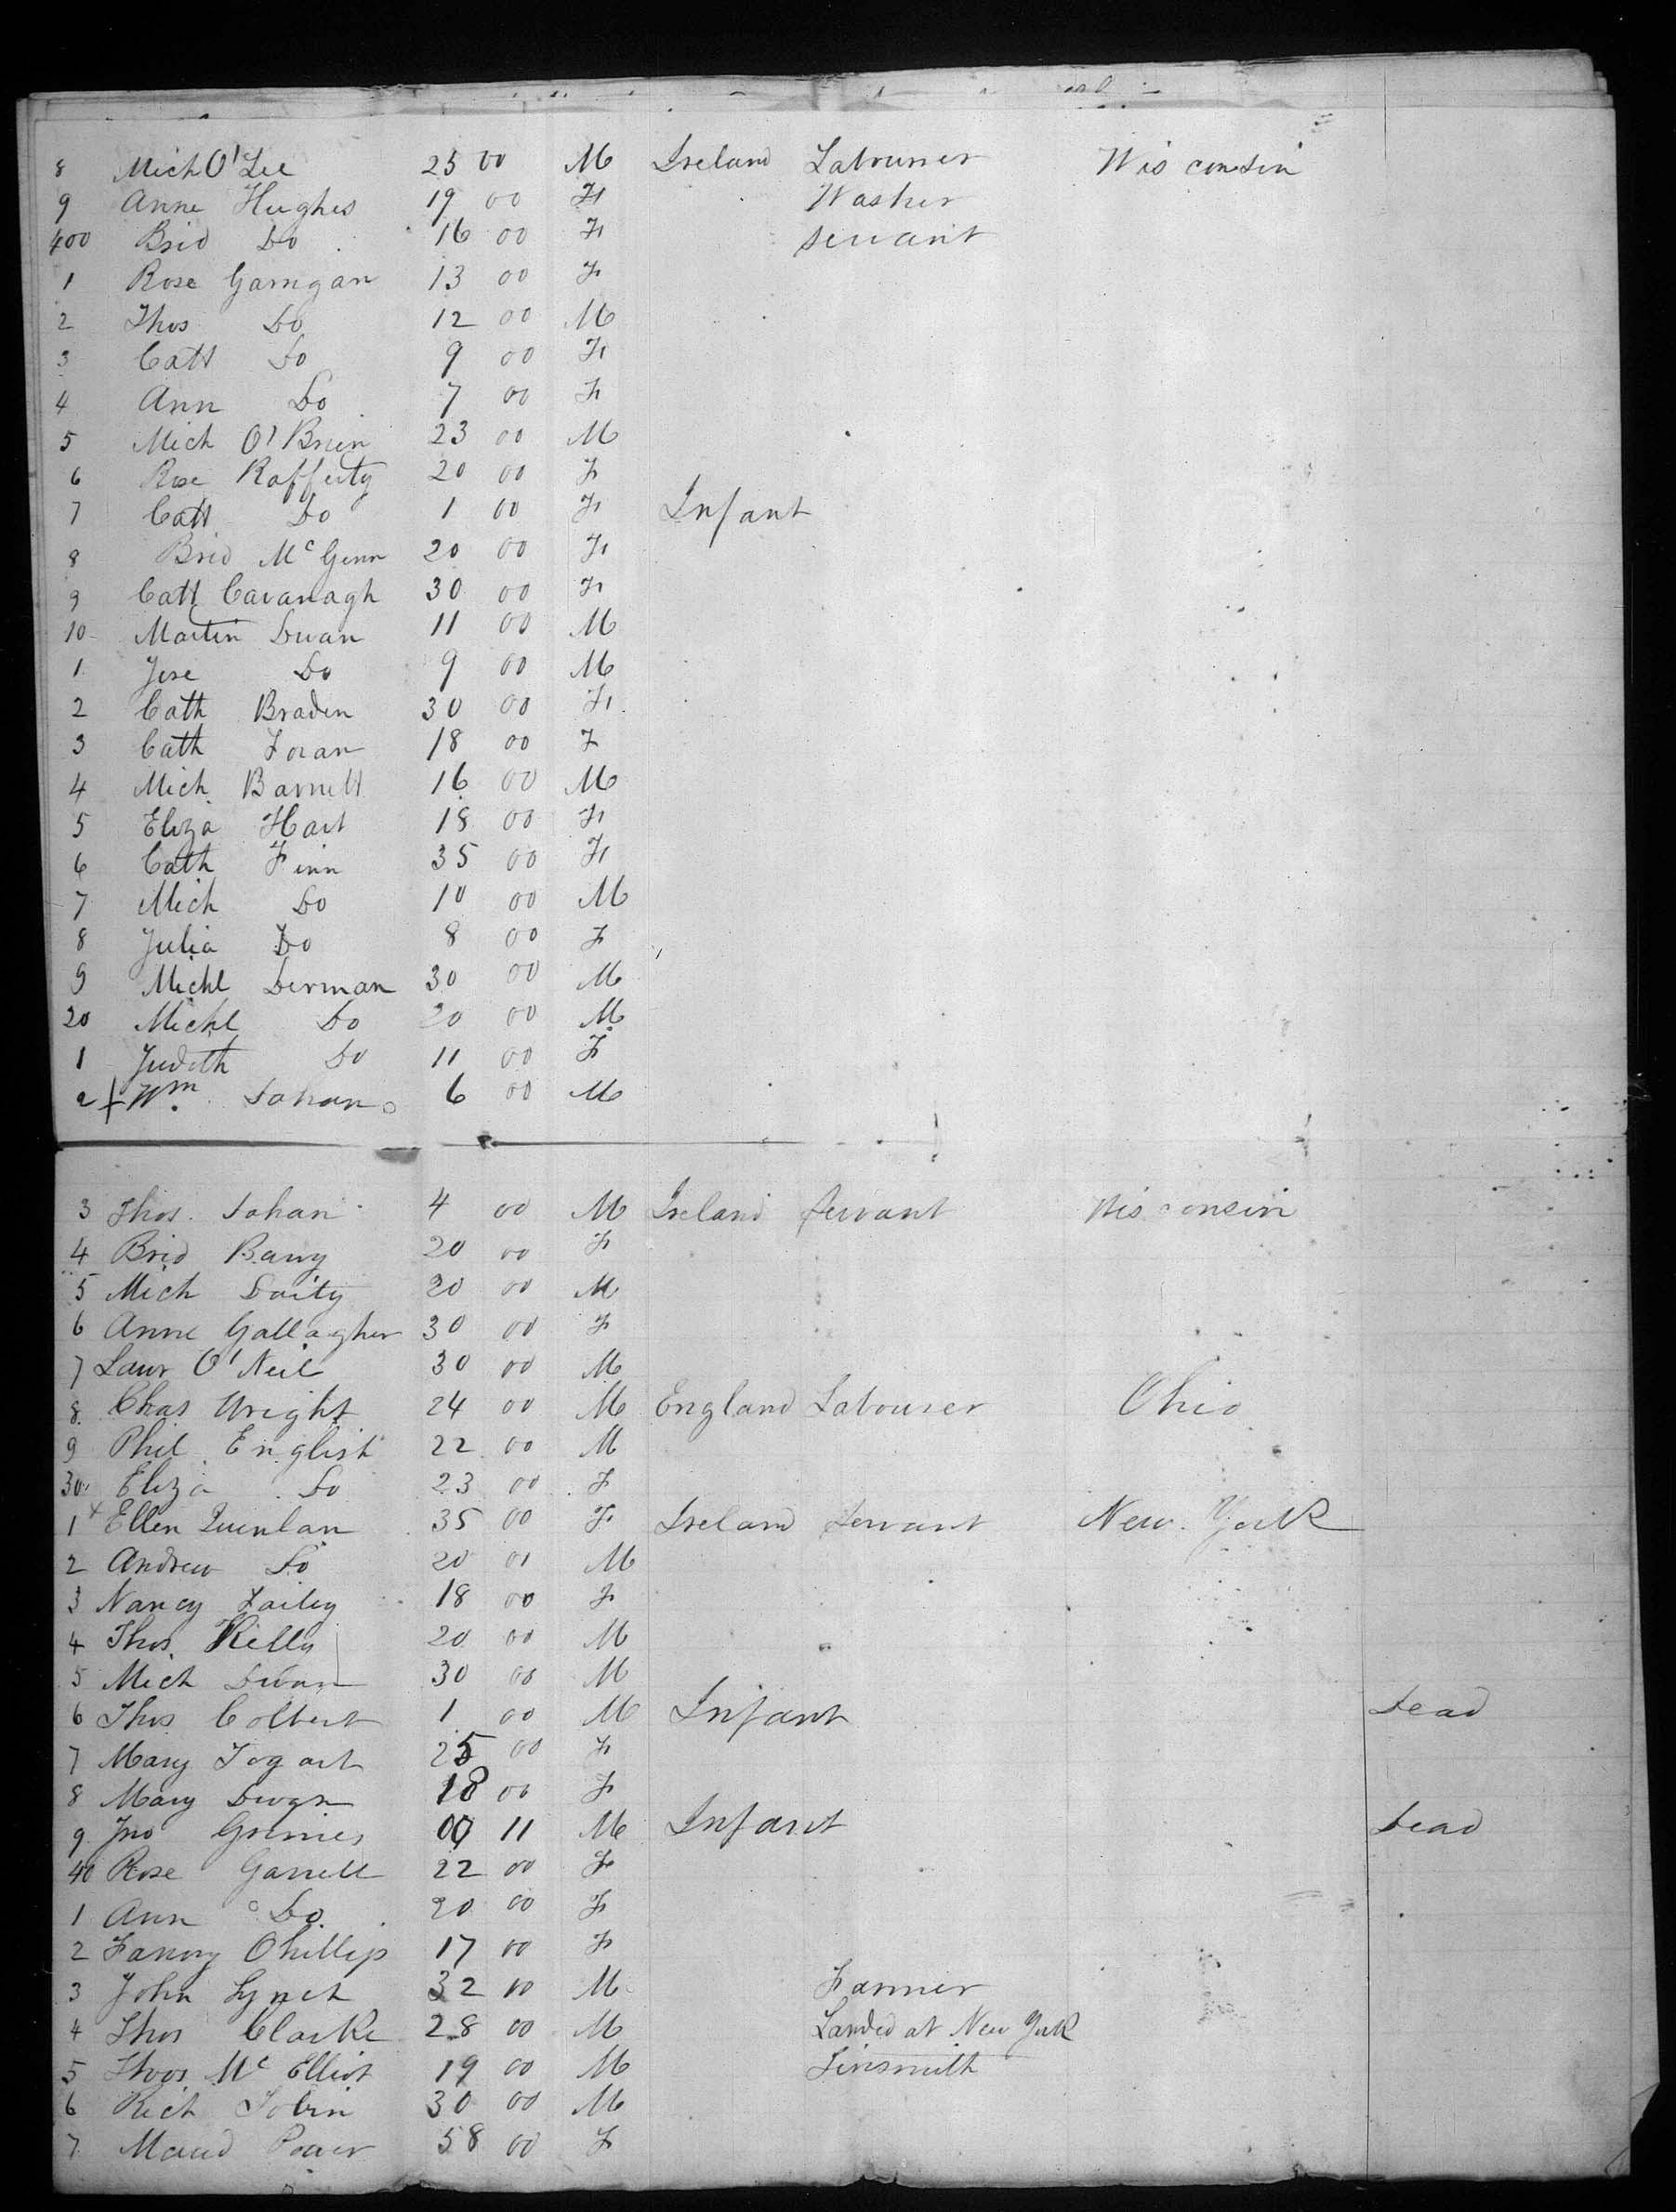 8 Mich O'Lee 25 00 M Ireland Labourer Wisconsin
9 Anne Hughes 19 00 F Washer
400 Brid Do 16 00 F servant
1 Rose Garrigan 13 00 F
2 Thos Do 12 00 M
3 Cath Do 9 00 F
4 Ann Do 7 00 F
5 Mich O'Brien 23 00 M
6 Rose Rafferty 20 00 F
7 Cath Do 1 00 F Infant
8 Brid McGinn 20 00 F
9 Cath Cavanagh 30 00 F
10 Martin Dwan 11 00 M
1 Do 9 00 M
2 Cath Braden 30 00 F
3 Cath Foran 18 00 F
4 Mich Barnett 16 00 M
5 Eliza Hart 18 00 F
6 Cath Finn 35 00 F
7 Mich Do 10 00 M
8 Julia Do 8 00 F
9 Michl Derman 30 00 M
20 Michl Do 20 00 M
1 Judith Do 11 00 F
2 Wm. Dohan 6 00 M
3 Thos. Dohan 4 00 M Ireland Servant Wisconsin
4 Brid 20 00 F
5 Mich 20 00 M
6 Anne Gallagher 30 00 F
7 Laur O'Neil 30 00 M
8 Chas Wright 24 00 M England Labourer Ohio
9 Phil English 22 00 M
30 Eliza Do 23 00 F
1 Ellen Quinlan 35 00 F Ireland Servant New York
2 Andrew Do 20 01 M
3 Nancy 18 00 F
4 Thos. Kelly 20 00 M
5 Mich Dwan 30 00 M
6 Thos Colbert 1 00 M Infant Dead
7 Mary Fogart 25 00 F
8 Mary Dwan 18 00 F
9 Jno Grimes 00 11 M Infant Dead
40 Rose Garrell 22 00 F
1 Ann Do. 20 00 F
2 Fanny Phillips 17 00 F
3 John Lynch 32 00 M Farmer
4 Thos Clarke 28 00 M Landed at New York
5 Thos McElliot 19 00 M Tinsmith
6 Rich Tobin 30 00 M
7 Maud Power 58 00 F